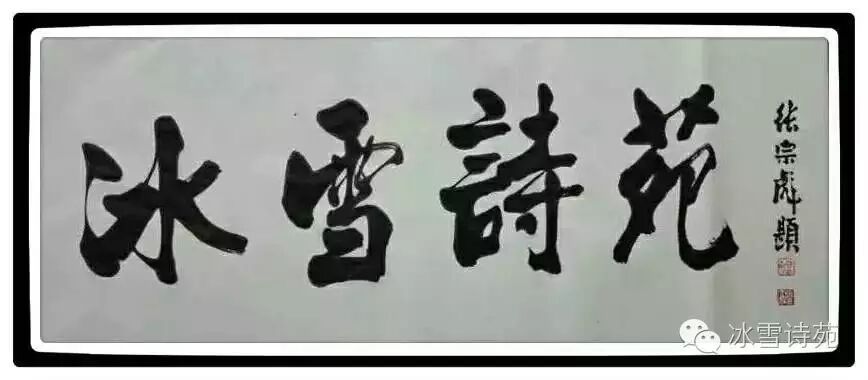 冰雪詩苑
张宗彪题
冰雪诗苑